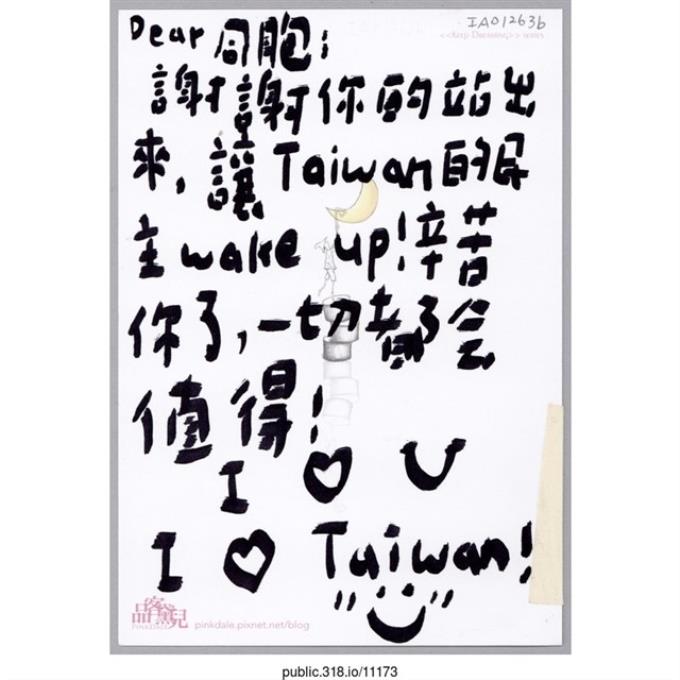 IA012636
<<Keep Dreaming>> series
Dear 同胞:
謝謝你的站出
來, 讓 Taiwan的民
主 wake up!辛苦
你了,一切都会
值得!
I ♡ U
I ♡ Taiwan!
品客黛兒
PINKDALE
pinkdale.pixnet.net/blog
public.318.io/11173